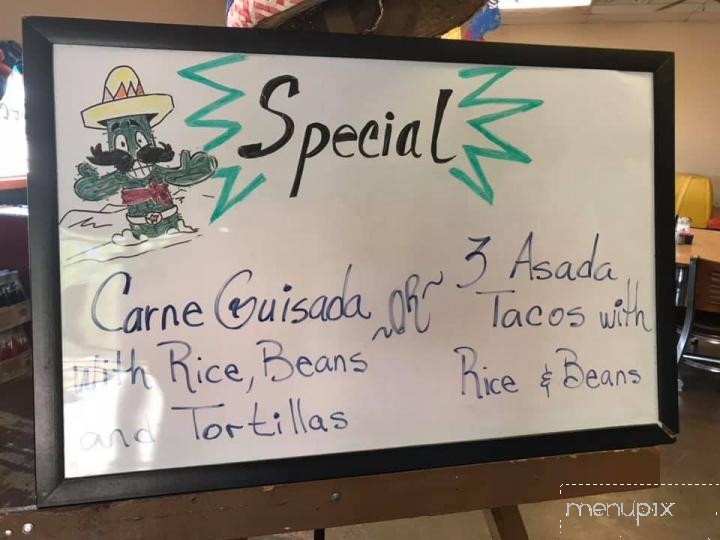 Special
Carne Guisada
with Rice, Beans
and Tortillas
~OR~
3 Asada
Tacos with
Rice & Beans
menupix